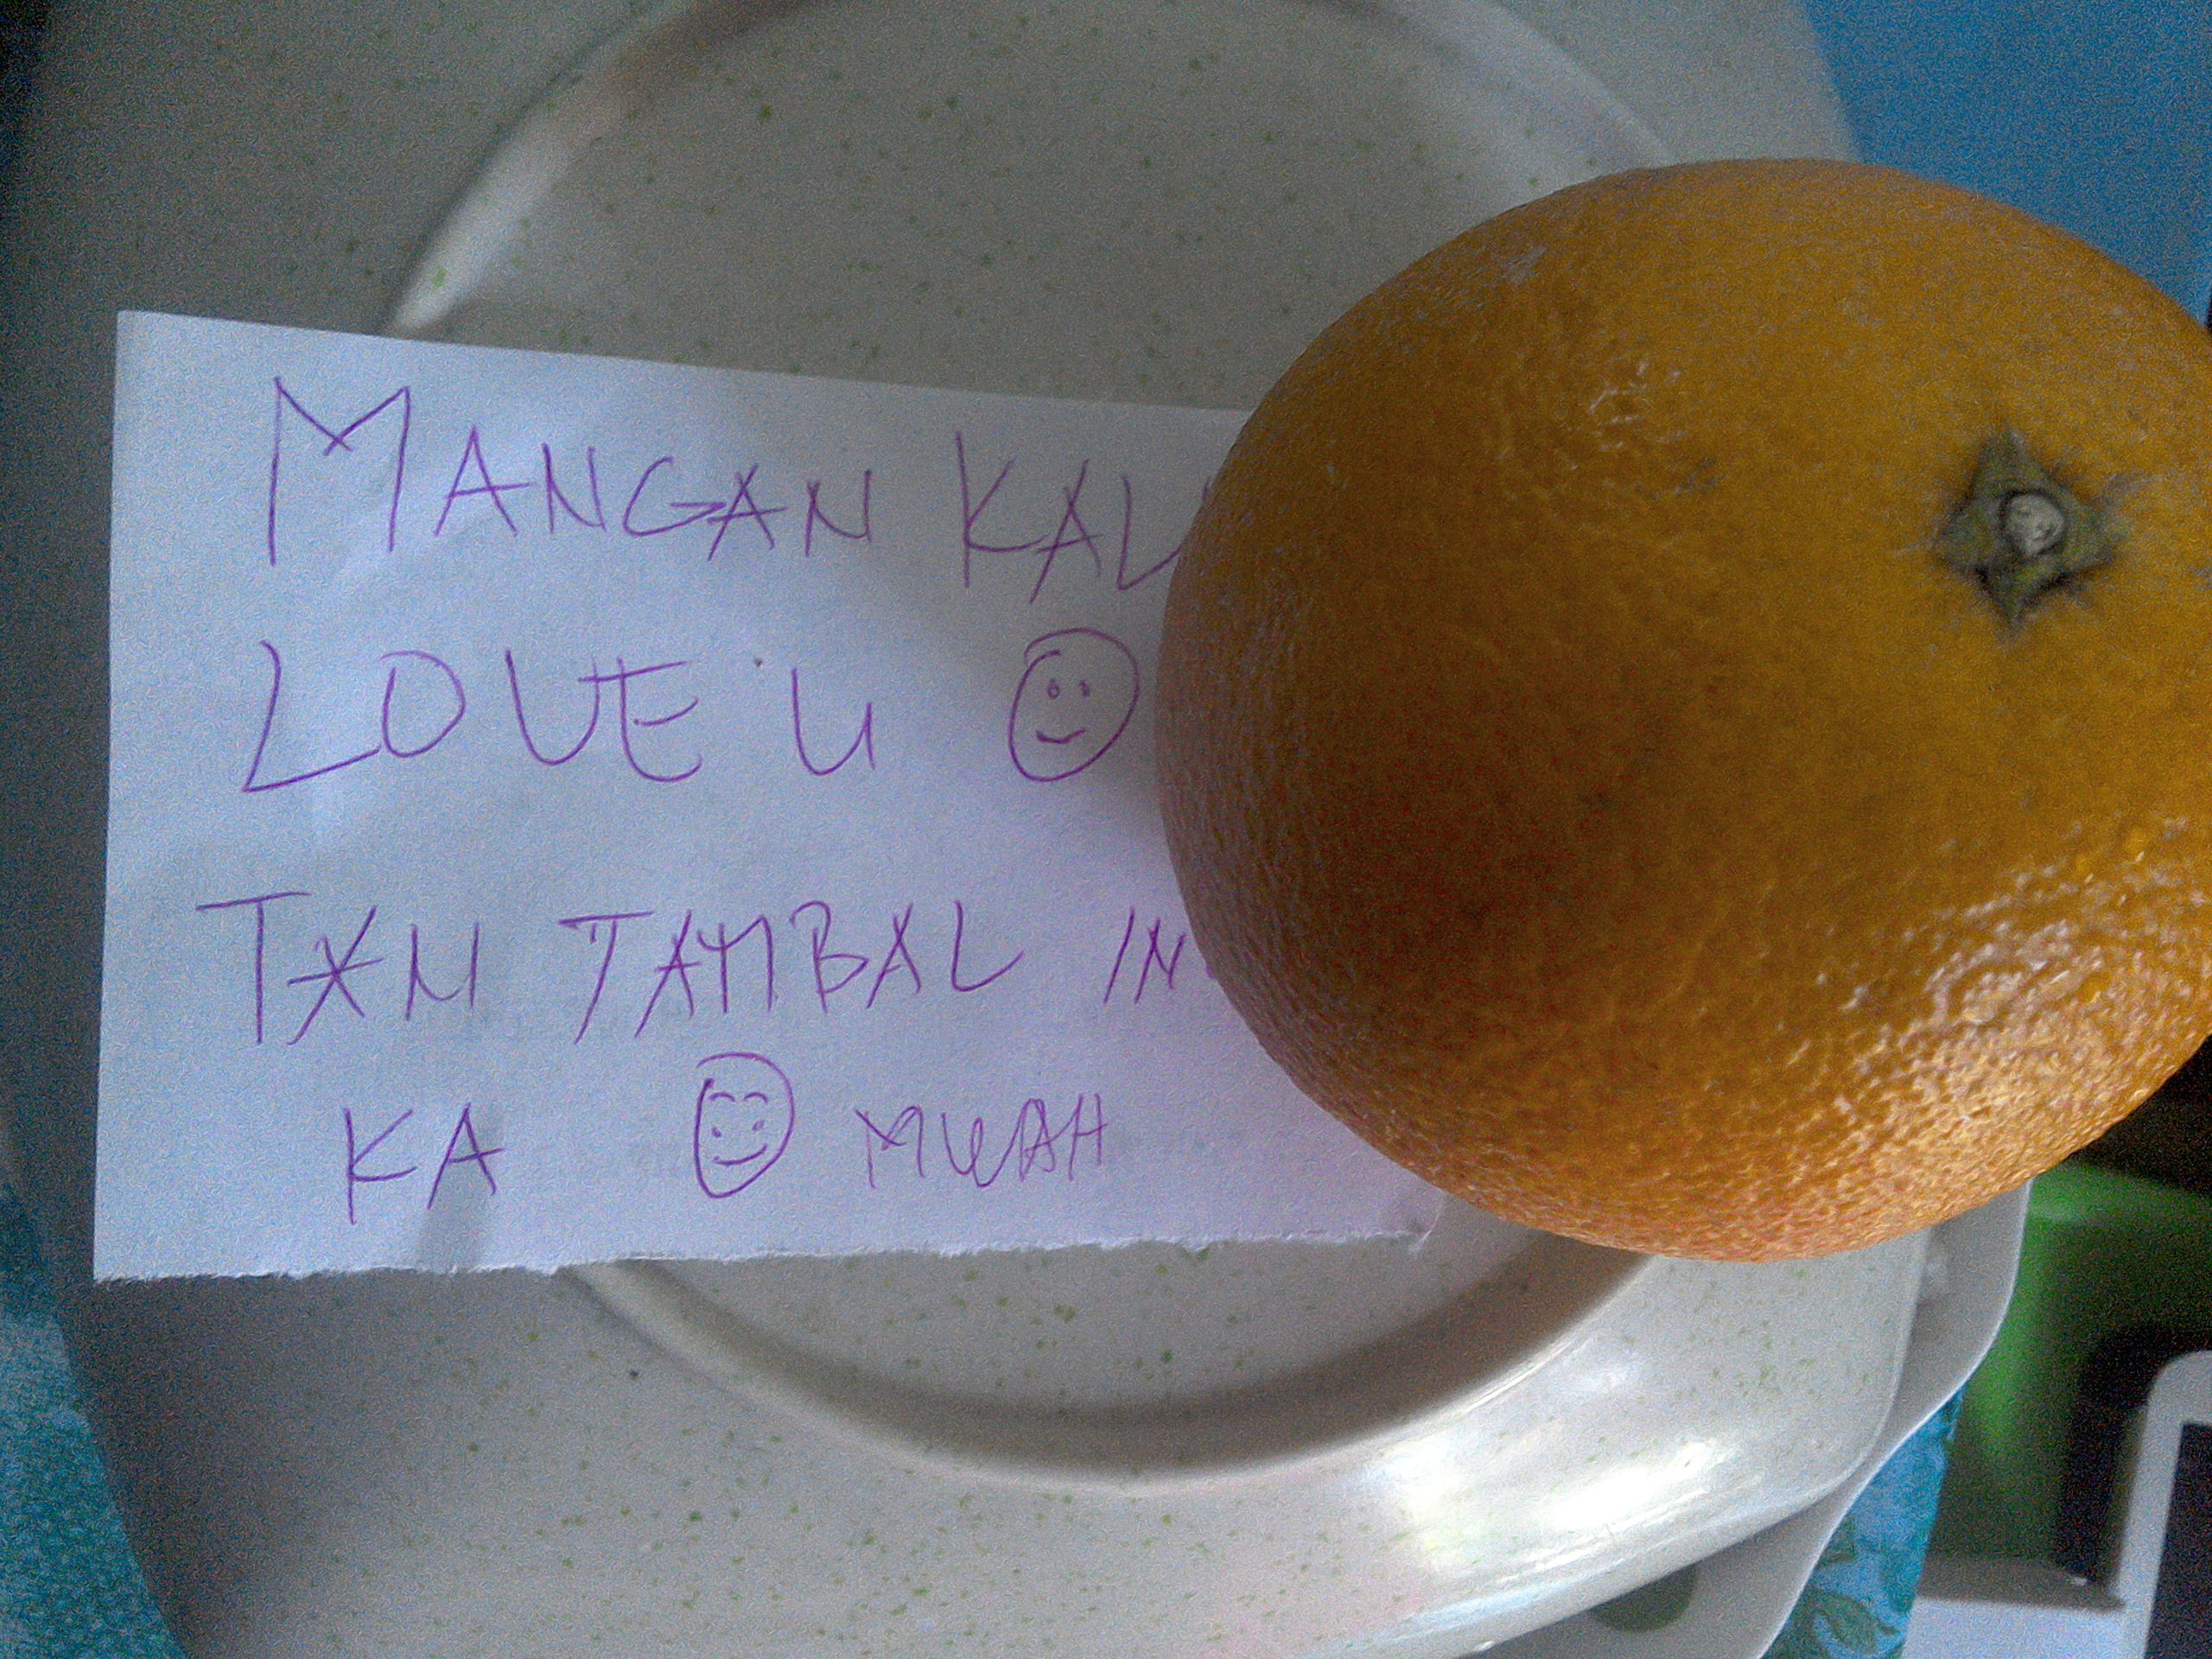 MANGAN KAL
LOVE U
TAN TAMBAL IN
KA MWAH